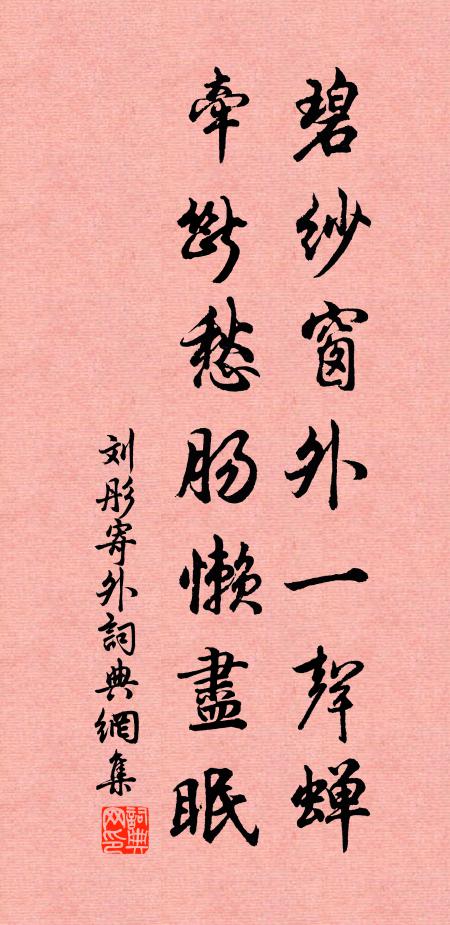 碧纱窗外一声蝉
牵断愁肠懒盡眠
刘彤寄外詞典網集
詞典网印